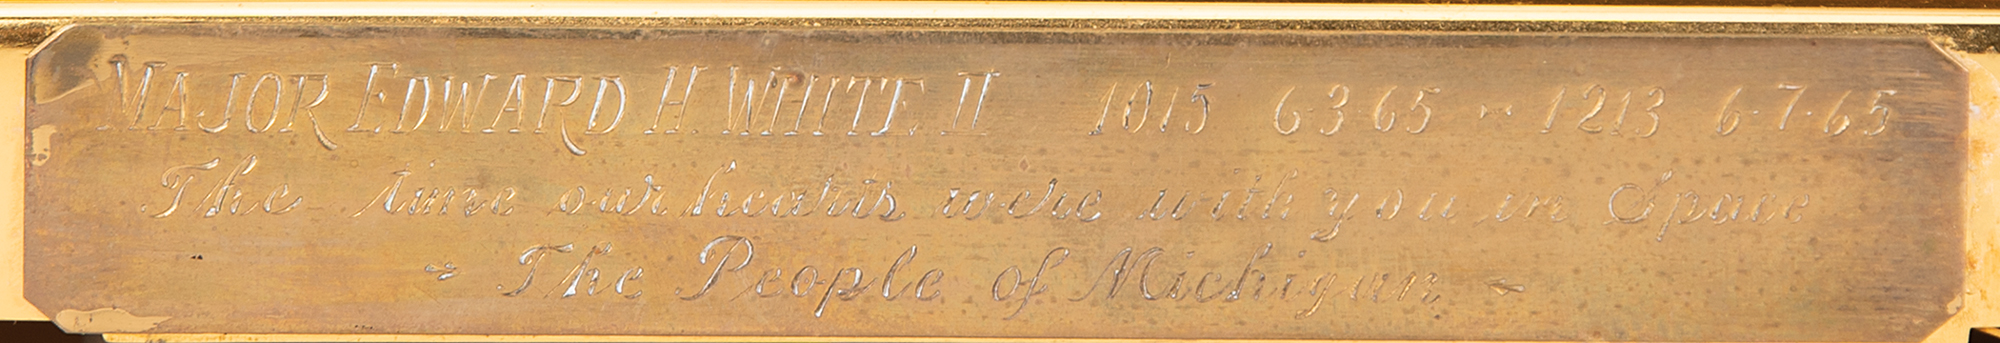 MAJOR EDWARD H. WHITE II 1015 6·3·65 ~ 1213 6·7·65
The time our hearts were with you in Space
~ The People of Michigan ~